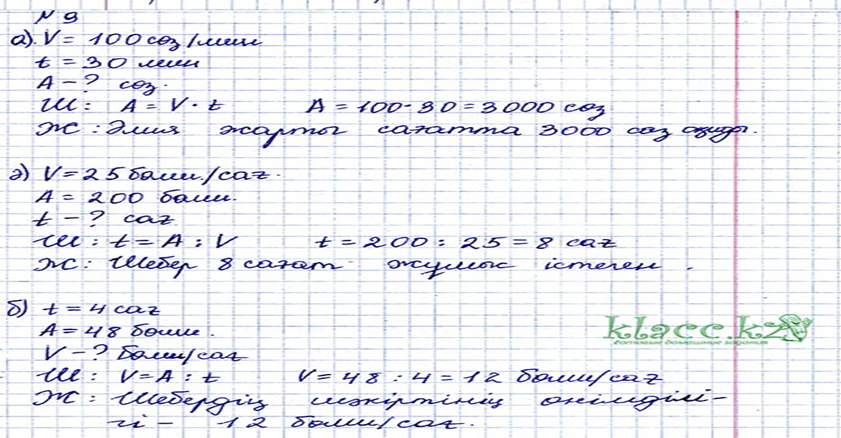 № 9
а). V = 100 сөз/мин
t = 30 мин
A - ? сөз.
Ш: A = V · t A = 100 · 30 = 3000 сөз
Ж: Әлия жарты сағатта 3000 сөз оқиды.
ә) V = 25 бөлш./сағ.
A = 200 бөлш.
t - ? сағ
Ш: t = A : V t = 200 : 25 = 8 сағ
Ж: Шебер 8 сағат жұмыс істеген.
б) t = 4 сағ
A = 48 бөлш.
klacc.kz
готовые домашние задания
V - ? бөлш/сағ
Ш: V = A : t V = 48 : 4 = 12 бөлш/сағ
Ж: Шебердің шәкіртінің өнімділі-
гі - 12 бөлш/сағ.